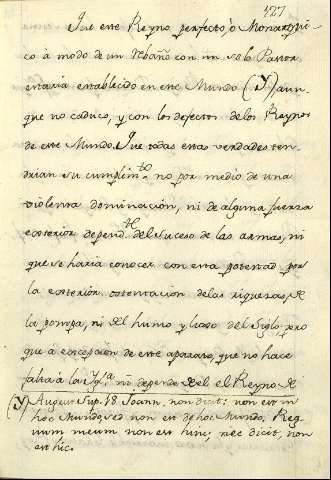 127
Que este Reyno perfecto ò Monarqui-
co à modo de un rebaño con un solo Pastor
estaria establecido en este Mundo (y) aun-
que no caduco, y con los defectos de los Reynos
de este Mundo. Que todas estas verdades ten-
drian su cumplim.to no por medio de una
violenta dominacion, ni de alguna fuerza
exterior depend.te del suceso de las armas, ni
que se haria conocer con esta potestad por
la exterior ostentacion de las riquezas, de
la pompa, ni del humo y luxo del Siglo: pero
que à excepcion de este aparato, que no hace
falta à la Ygl.a, ni depende de el el Reyno de
(y) August. Sup. 18 Joann. non dicit: non est in
hoc Mundo, sed non est de hoc Mundo. Reg
num meum non est hinc; nec dicit, non
est hic.